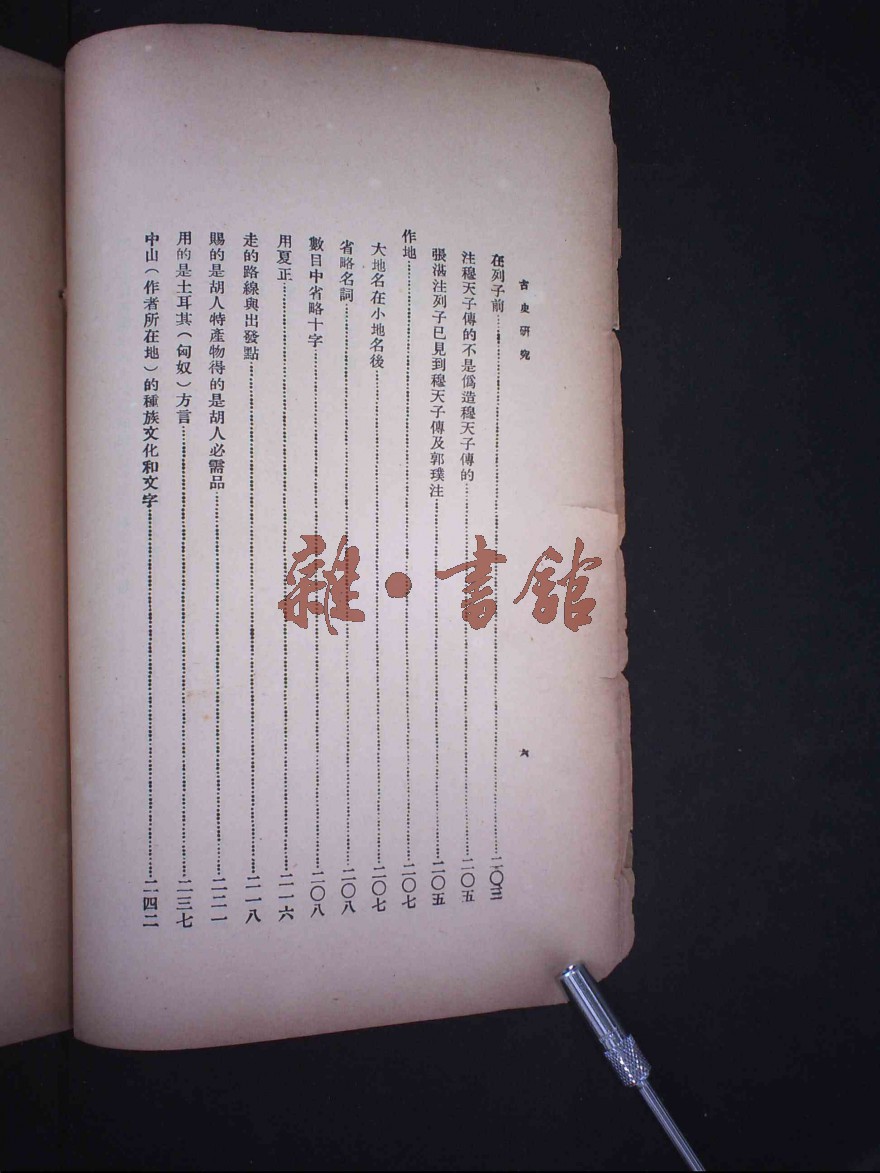 古史研究
六
在列子前……二〇三
注穆天子傳的不是僞造穆天子傳的……二〇五
張湛注列子已見到穆天子傳及郭璞注……二〇五
作地……二〇七
大地名在小地名後……二〇七
省略名詞……二〇八
數目中省略十字……二〇八
用夏正……二一六
走的路線與出發點……二一八
賜的是胡人特產物得的是胡人必需品……二二一
用的是土耳其（匈奴）方言……二三七
中山（作者所在地）的種族文化和文字……二四二
雜·書館